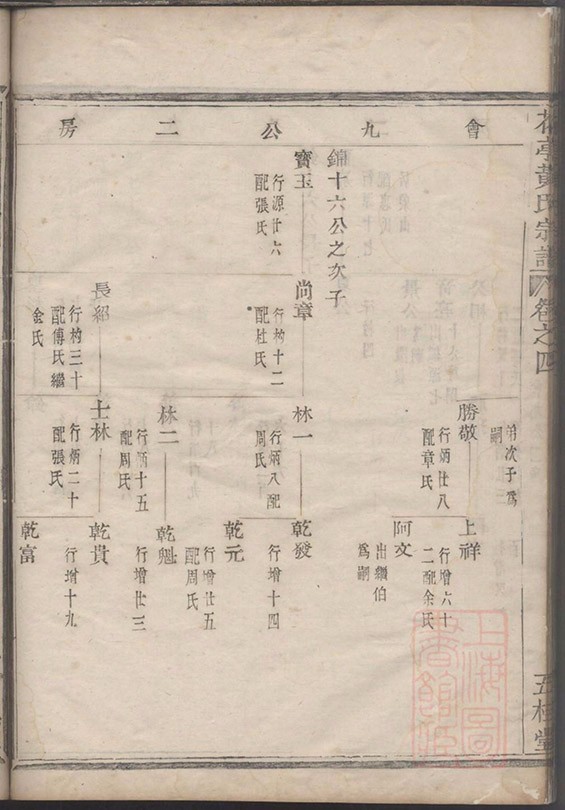 黃氏宗譜
卷之四
五桂堂
會九公二房
弟次子爲
嗣
勝敬
行炳廿八
配章氏
上祥
行增六十
二配余氏
阿文
出繼伯
爲嗣
鏞十六公之次子
寶玉
行源廿六
配張氏
尚章
行杓十二
配杜氏
林一
行炳八配
周氏
乾發
行增十四
乾元
行增廿五
配周氏
林二
行炳十五
配周氏
乾魁
行增廿三
長紹
行杓三十
配傅氏繼
金氏
士林
行炳二十
配張氏
乾貴
行增十九
乾富
上海圖書館藏